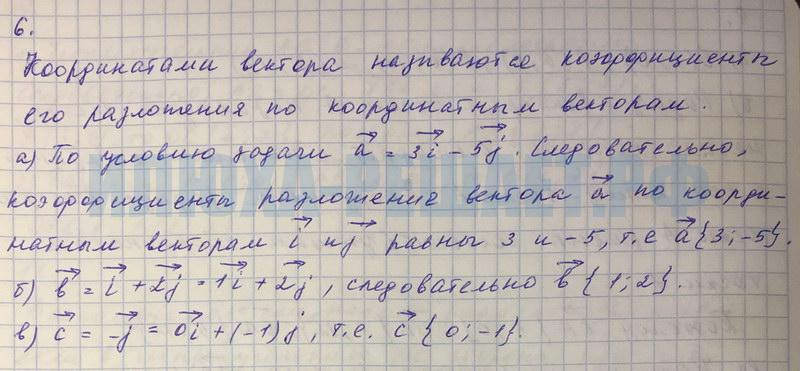 6.
Координатами вектора называются коэффициенты
его разложения по координатным векторам.
а) По условию задачи a⃗ = 3i⃗ - 5j⃗. Следовательно,
коэффициенты разложение вектора a⃗ по коорди-
натным векторам i⃗ и j⃗ равны 3 и -5, т.е a⃗{3; -5}.
б) b⃗ = i⃗ + 2j⃗ = 1i⃗ + 2j⃗, следовательно b⃗{1; 2}.
в) c⃗ = -j⃗ = 0i⃗ + (-1)j⃗, т.е. c⃗{0; -1}.